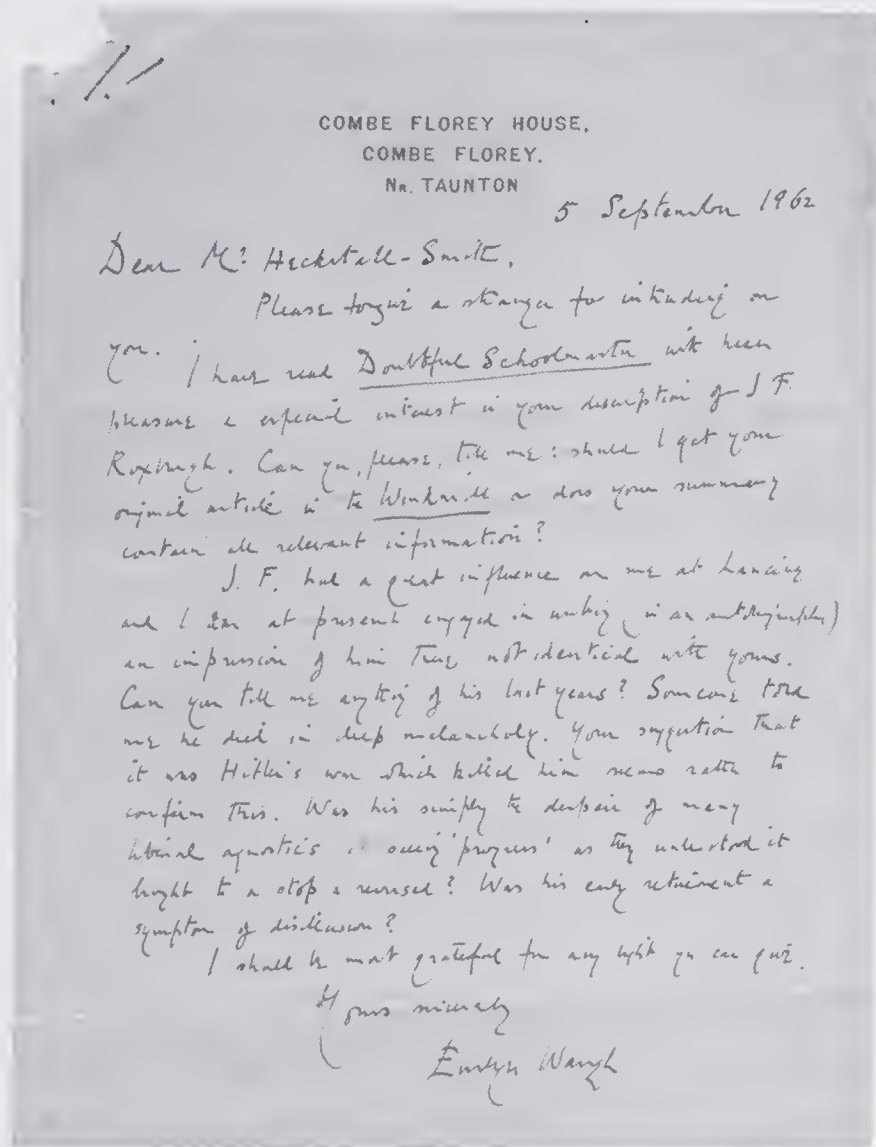 COMBE FLOREY HOUSE,
COMBE FLOREY,
NR. TAUNTON
5 September 1962
Dear Mr Heckstall-Smith,
Please forgive a stranger for intruding on
you. I have read Doubtful Schoolmaster with keen
pleasure & especial interest in your description of J F.
Roxburgh. Can you, please, tell me: should I get your
original article in the Windmill or does your summary
contain all relevant information?
J. F. had a great influence on me at Lancing
and I am at present engaged in writing (in an autobiography)
an impression of him not identical with yours.
Can you tell me anything of his last years? Someone told
me he died in deep melancholy. Your suggestion that
it was Hitler's war which killed him seems rather to
confirm this. Was his simply the despair of many
liberal agnostics seeing 'progress' as they understood it
brought to a stop & reversed? Was his early retirement a
symptom of disillusion?
I should be most grateful for any light you can give.
Yours sincerely
Evelyn Waugh